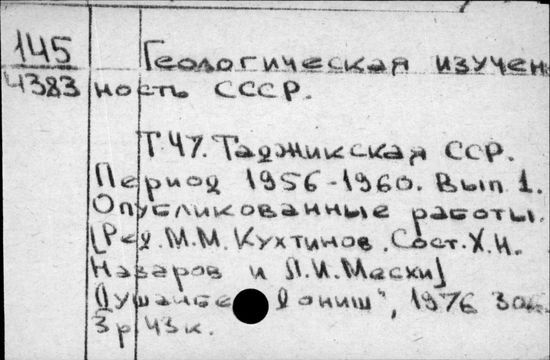 145
4383
Геологическая изучен
ность СССР.
Т.47. Таджикская ССР.
Период 1956-1960. Вып 1.
Опубликованные работы.
[Ред. М.М. Кухтинов. Сост. Х.Н.
Назаров и Л.И. Маски]
Душанбе Дониш", 1976
3р 43к.